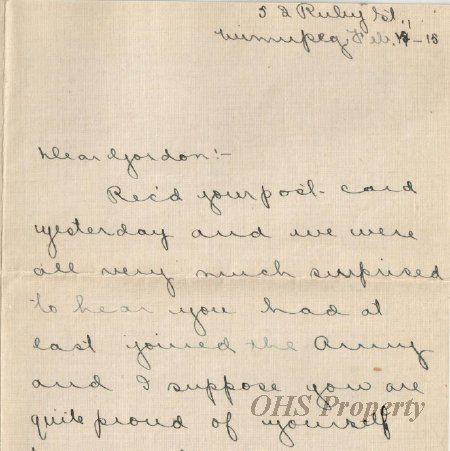 52 Ruby St.,
Winnipeg, Feb. -18
Dear Gordon:-
Rec'd your post-card
yesterday and we were
all very much surprised
to hear you had at
last joined the Army
and I suppose you are
quite proud of yourself
OHS Property